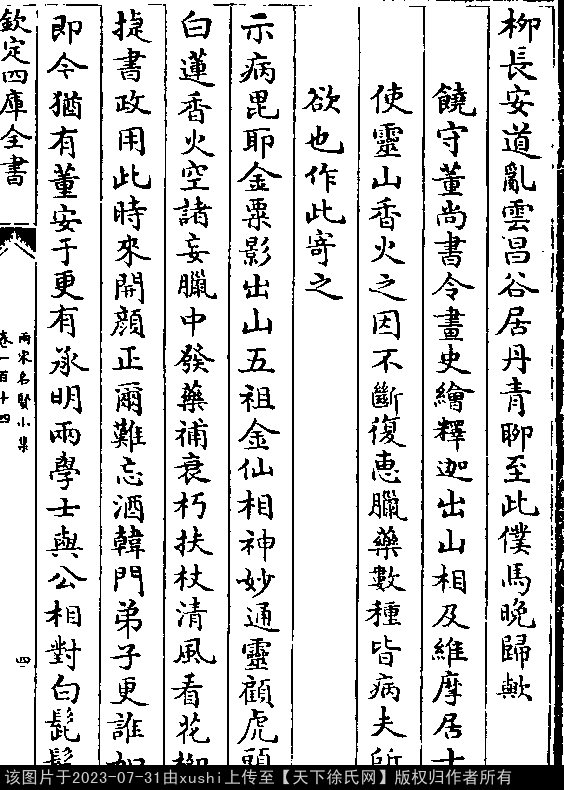 柳長安道亂雲昌谷居丹青聊至此僕馬晚歸歟
饒守董尚書令畫史繪釋迦出山相及維摩居士
使靈山香火之因不斷復惠臘藥數種皆病夫所
欲也作此寄之
示病毘耶金粟影出山五祖金仙相神妙通靈顧虎頭
白蓮香火空諸妄臘中發藥補衰朽扶杖清風看花柳
捷書政用此時來開顔正爾難忘酒韓門弟子更誰如
即今猶有董安于更有承明兩學士與公相對白髭
欽定四庫全書
兩宋名賢小集
卷一百十四
四
该图片于2023-07-31由xushi上传至【天下徐氏网】版权归作者所有